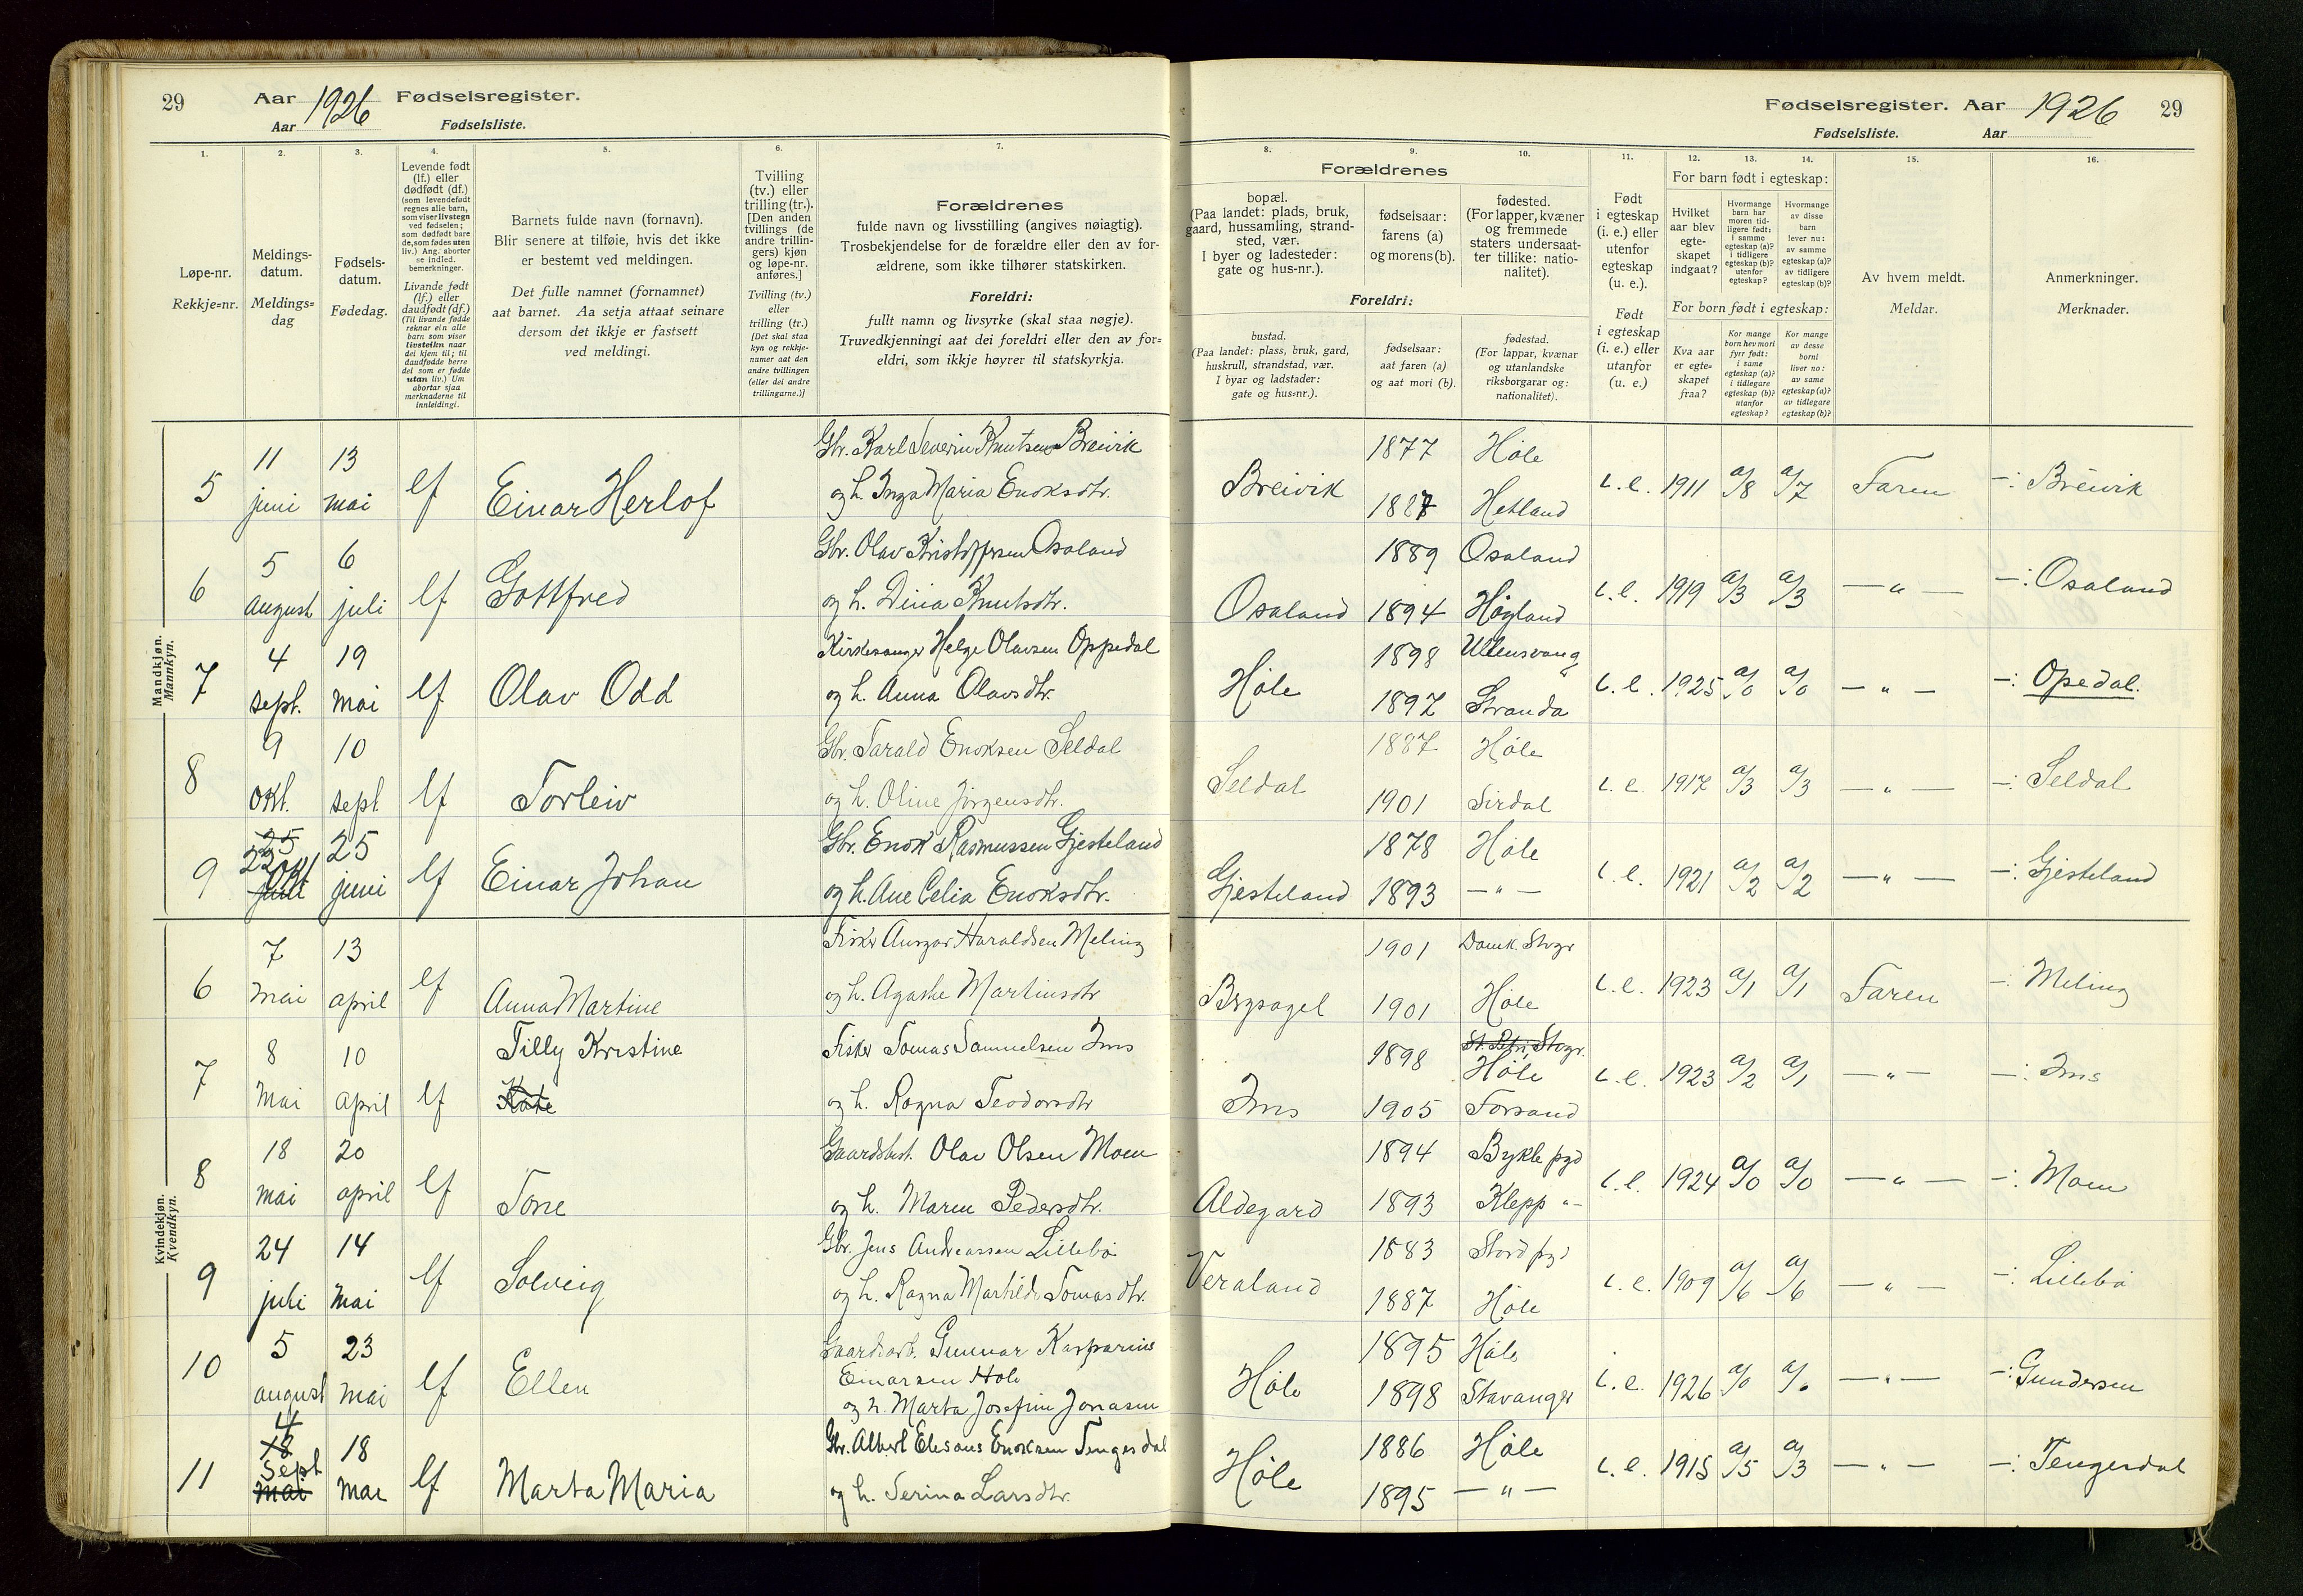 29 Aar 1926 Fødselsregister.
Aar Fødselsliste.
Fødselsregister. Aar 1926 29
Fødselsliste. Aar
1. 2. 3. 4. 5. 6. 7. 8. 9. 10. 11. 12. 13. 14. 15. 16.
Løpe-nr.
Rekkje=nr.
Meldings-
datum.
Meldings=
dag
Fødsels-
datum.
Fødedag.
Levende født
(lf.) eller
dødfødt (df.)
(som levendefødt
regnes alle barn,
som viser livstegn
ved fødselen;
som dødfødt bare
de, som fødes uten
liv.) Ang. aborter
se indled.
bemerkninger.
Livande født
(lf.) eller
daudfødt (df.)
(Til livande fødde
reknar ein alle
barn som viser
livsteikn naar
dei kjem til; til
daudfødde berre
dei som er fødde
utan liv.) Um
abortar sjaa
merknaderne til
innleidingi.
Barnets fulde navn (fornavn).
Blir senere at tilføie, hvis det ikke
er bestemt ved meldingen.
Det fulle namnet (fornamnet)
aat barnet. Aa setja attaat seinare
dersom det ikkje er fastsett
ved meldingi.
Tvilling
(tv.) eller
trilling (tr.).
[Den anden
tvillings (de
andre trillin-
gers) kjøn
og løpe-nr.
anføres.]
Tvilling (tv.)
eller
trilling (tr.)
[Det skal staa
kyn og rekkje-
numer aat den
andre tvillingen
(eller dei andre
trillingarne.)]
Forældrenes
fulde navn og livsstilling (angives nøiagtig).
Trosbekjendelse for de forældre eller den av for-
ældrene, som ikke tilhører statskirken.
Foreldri:
fullt namn og livsyrke (skal staa nøgje).
Truvedkjenningi aat dei foreldri eller den av for=
eldri, som ikkje høyrer til statskyrkja.
Forældrenes
bopæl.
(Paa landet: plads, bruk,
gaard, hussamling, strand-
sted, vær.
I byer og ladesteder:
gate og hus-nr.).
fødselsaar:
farens (a)
og morens (b).
fødested.
(For lapper, kvæner
og fremmede
staters undersaat-
ter tillike: natio-
nalitet).
Foreldri:
bustad.
(Paa landet: plass, bruk, gard,
huskrull, strandstad, vær.
I byar og ladstader:
gate og hus=nr.).
fødselsaar:
aat faren (a)
og aat mori (b).
fødestad.
(For lappar, kvænar
og utanlandske
riksborgarar og:
nationalitet).
Født
i egteskap
(i. e.) eller
utenfor
egteskap
(u. e.).
Født
i egteskap
(i. e.) eller
utanfor
(u. e.)
For barn født i egteskap:
Hvilket
aar blev
egte-
skapet
indgaat?
Hvormange
barn har
moren tid-
ligere født:
i samme
egteskap (a)?
i tidligere
egteskap (b)?
utenfor
egteskap?
Hvormange
av disse
barn
lever nu:
av samme
egteskap (a)?
av tidligere
egteskap (b)?
For born født i egteskap:
Kva aar
er egte=
skapet
fraa?
Kor mange
born hev mori
fyrr født:
i same
egteskap (a)?
i tidlegare
egteskap (b)?
utanfor
egteskap?
Kor mange
av desse
borni
liver no:
av same
egteskap (a)?
av tidlegare
egteskap (b)?
Av hvem meldt.
Meldar.
Anmerkninger.
Merknader.
Mandkjøn.
Mannkyn.
5 11 juni 13 mai lf Einar Herlof
Gbr. Karl Severin Knutsen Breivik
og h. Inga Maria Enoksdtr.
Breivik 1877 Høle
1887 Hetland
i.e. 1911 a/8 a/7 Faren —: Breivik
6 5 august 6 juli lf Gottfred
Gbr. Olav Kristoffersen Osaland
og h. Dina Knutsdtr.
Osaland 1889 Osaland
1894 Høgland
i.e. 1919 a/3 a/3 — " — —: Osaland
7 4 sept. 19 mai lf Olav Odd
Kirkesanger Helge Olavsen Oppedal
og h. Anna Olavsdtr.
Høle 1898 Ullensvang
1897 Stranda
i.e. 1925 a/0 a/0 — " — —: Opedal.
8 9 okt. 10 sept lf Torleiv
Gbr. Tarald Enoksen Seldal
og h. Oline Jørgensdtr.
Seldal 1887 Høle
1901 Sirdal
i.e. 1917 a/3 a/3 — " — —: Seldal
9 25 22 okt juni 25 juni lf Einar Johan
Gbr. Enok Rasmussen Gjesteland
og h. Ane Celia Enoksdtr.
Gjesteland 1878 Høle
1893 — " —
i.e. 1921 a/2 a/2 — " — —: Gjesteland
Kvindekjøn.
Kvendkyn.
6 7 mai 13 april lf Anna Martine
Fisker Ansgar Haraldsen Meling
og h. Agathe Martinsdtr
Brysagel 1901 Domk. Stvgr
1901 Høle
i.e. 1923 a/1 a/1 Faren —: Meling
7 8 mai 10 april lf Tilly Kristine
Kate
Fisker Tomas Samuelsen Ims
og h. Ragna Teodorsdtr
Ims 1898 St. Petri, Stvgr.
Høle
1905 Forsand
i.e. 1923 a/2 a/1 — " — —: Ims
8 18 mai 20 april lf Tone
Gaardsbest. Olav Olsen Moen
og h. Maren Pedersdtr.
Aldegard 1894 Bykle pgd
1893 Klepp " —
i.e. 1924 a/0 a/0 — " — —: Moen
9 24 juli 14 mai lf Solveig
Gbr. Jens Andreassen Lillebø
og h. Ragna Martilde Tomasdtr.
Veraland 1883 Stord pgd
1887 Høle
i.e. 1909 a/6 a/6 — " — —: Lillebø
10 5 august 23 mai lf Ellen
Gaardsarb. Gunnar Kasparius
Einarsen Hole
og h. Marta Josefine Jonasen
Høle 1895 Høle
1898 Stavanger
i.e. 1926 a/0 a/0 — " — —: Gundersen
11 4 18 sept mai 18 mai lf Marta Maria
Gbr. Albert Elesæus Enoksen Tengesdal
og h. Serina Larsdtr.
Høle 1886 Høle
1895 — " —
i.e. 1915 a/5 a/3 — " — —: Tengesdal